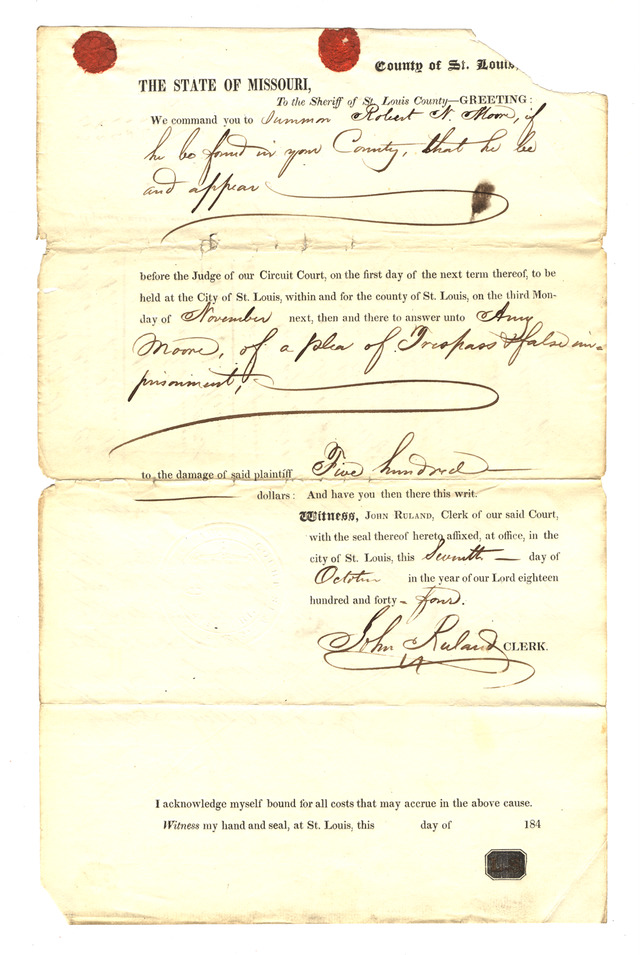 County of St. Louis,
THE STATE OF MISSOURI,
To the Sheriff of St. Louis County—GREETING:
We command you to Summon Robert N. Moore, if
he be found in your County, that he be
and appear
before the Judge of our Circuit Court, on the first day of the next term thereof, to be
held at the City of St. Louis, within and for the county of St. Louis, on the third Mon-
day of November next, then and there to answer unto Amy
Moore, of a plea of Trespass & false im=
prisonment,
to the damage of said plaintiff Five hundred
dollars: And have you then there this writ.
Witness, JOHN RULAND, Clerk of our said Court,
with the seal thereof hereto affixed, at office, in the
city of St. Louis, this Seventh — day of
October in the year of our Lord eighteen
hundred and forty - four.
John Ruland CLERK.
I acknowledge myself bound for all costs that may accrue in the above cause.
Witness my hand and seal, at St. Louis, this day of 184